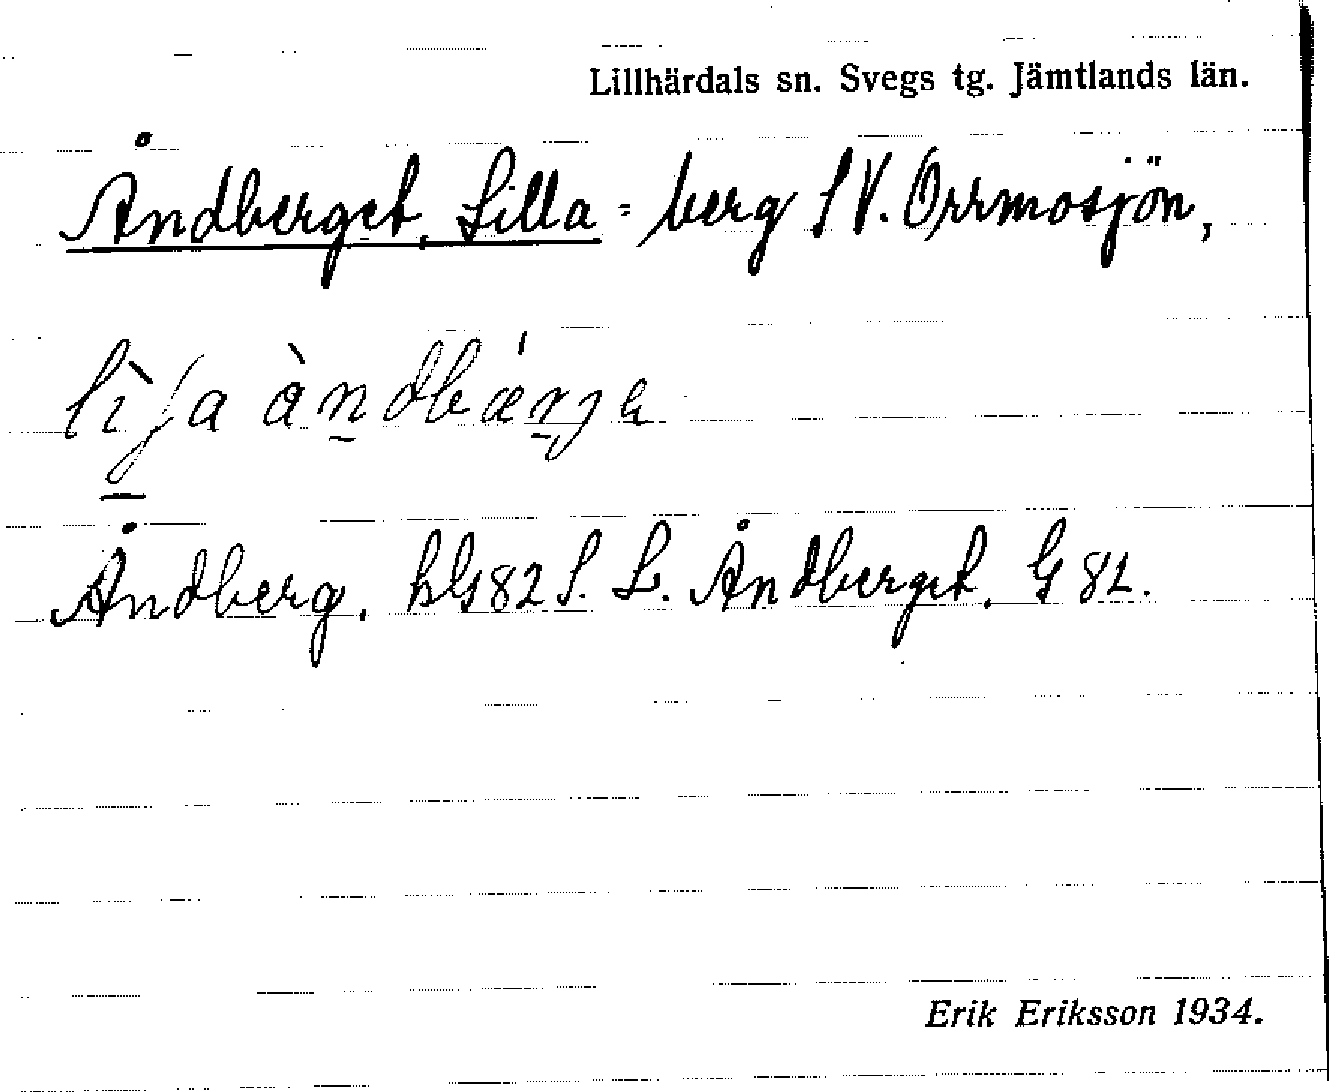 Lillhärdals sn. Svegs tg. Jämtlands län.
Åndberget, Lilla = berg SV. Orrmosjön,
Åndberg. hG82S. L. Åndberget. G 82.
Erik Eriksson 1934.